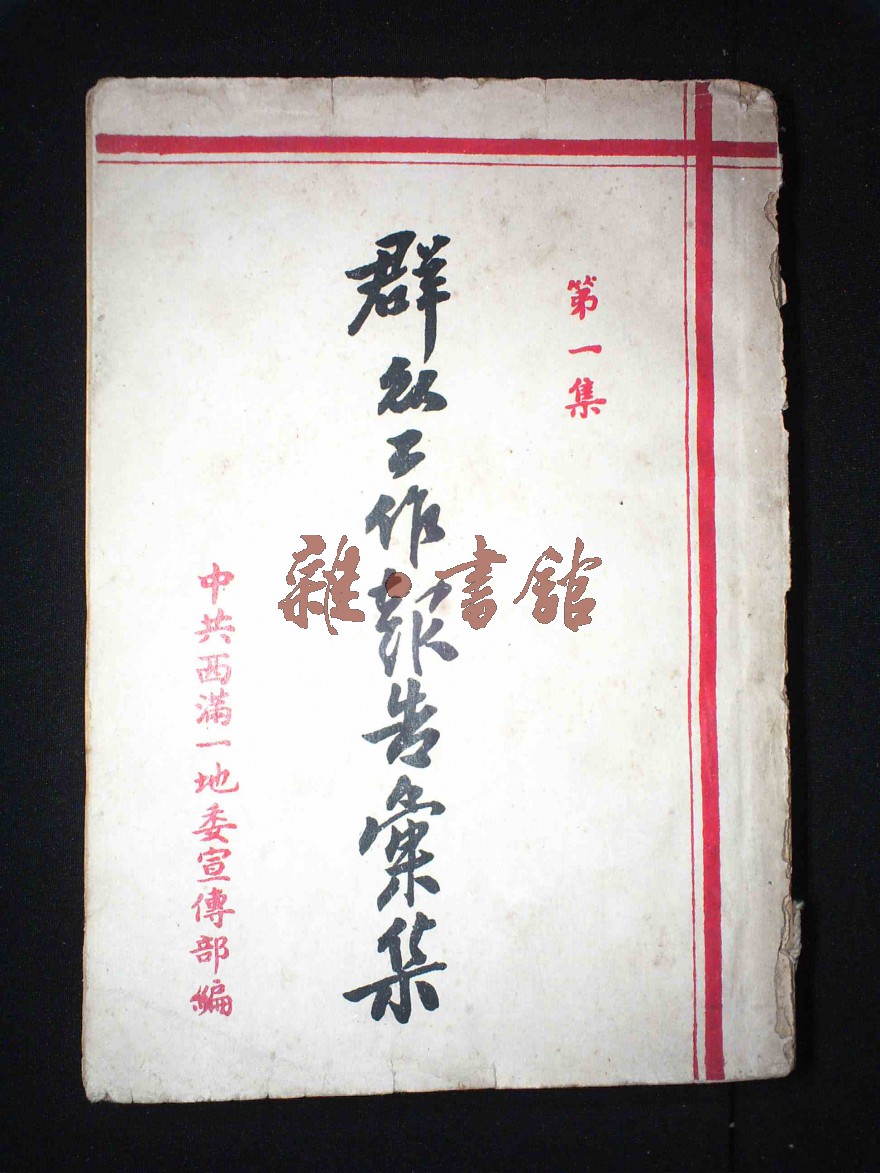 第一集
群众工作報告彙集
中共西滿一地委宣傳部編
雜·書館